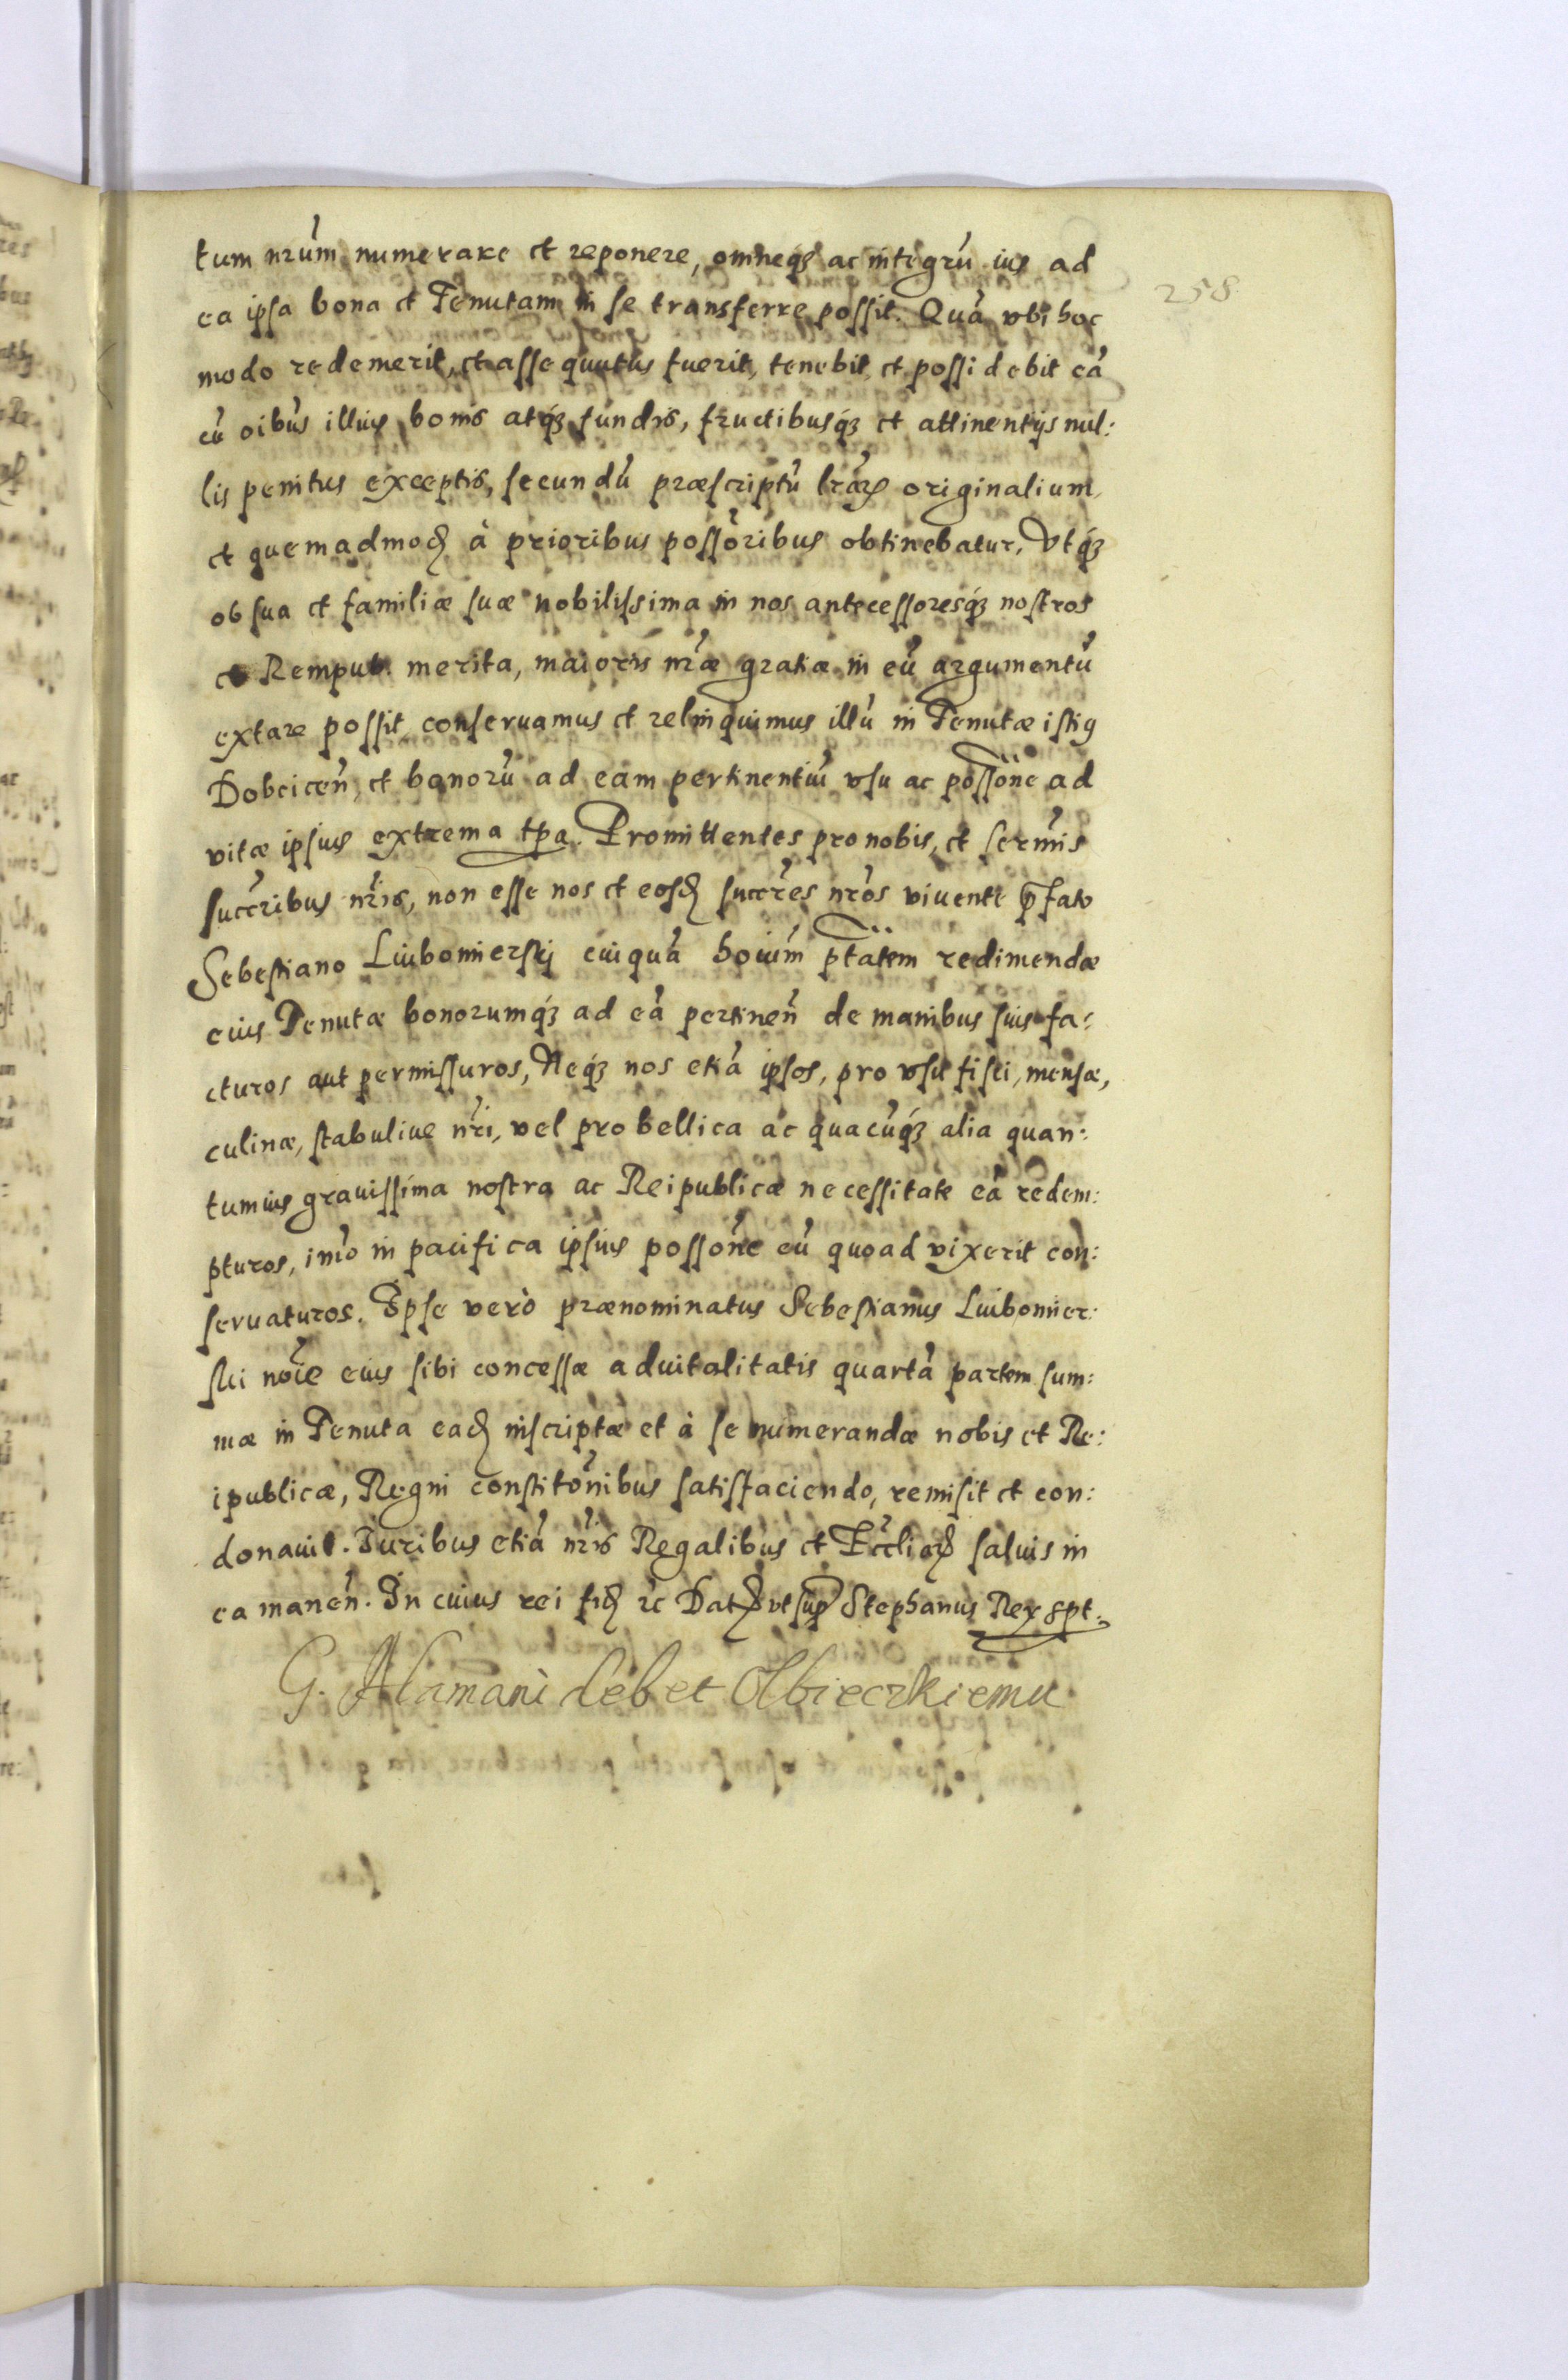 tum nr̃um numerare et reponere, omneq́ꝫ ac integrũ ius ad
ea ipsa bona et Tenutam in se transferre possit. Quã vbi hoc
258
modo redemerit, et assequutus fuerit, tenebit, et possidebit eã
cũ oĩbus illius bonis atq́ꝫ fundis, fructibusq́ꝫ et attinentijs nul:
lis penitus exceptis, secundũ præscriptũ lr̃arꝝ originalium,
et quemadmoꝺ à prioribus possõribus obtinebatur, Vtq́ꝫ
ob sua et familiæ suæ nobilissima in nos antecessoresq́ꝫ nostros
et Rempub. merita, maioris nr̃æ gratiæ in eũ argumentũ
extare possit, conseruamus et relinquimus illũ in Tenutæ istiꝯ
Dobcicen̄, et bonorũ ad eam pertinentiũ vsu ac possõne ad
vitæ ipsius extrema tp̃a. Promittentes pro nobis, et serm̃is
succ̃ribus nr̃is, non esse nos et eosꝺ succr̃es nr̃os viuente p̃fato
Sebestiano Liubomierskj cuiquã hoĩum p̃tatem redimendæ
eius Tenutæ bonorumq́ꝫ ad eã pertinen̄ de manibus suis fa:
cturos aut permissuros, Neq́ꝫ nos etiã ipsos, pro vsu fisci, mensæ,
culinæ, stabuliue nr̃i, vel pro bellica ac quacũq́ꝫ alia quan:
tumuis grauissima nostra ac Reipublicæ necessitate eã redem:
pturos, im̃o in pacifica ipsius possõne eũ quoad vixerit con:
seruaturos. Ipse verò prænominatus Sebestianus Liubomier:
ski noĩe eius sibi concessæ aduitalitatis quartã partem sum:
mæ in Tenuta eaꝺ inscriptæ et à se numerandæ nobis et Re:
ipublicæ, Regni constitõnibus satisfaciendo, remisit et con:
donauit. Iuribus etiã nr̃is Regalibus et Eccliarꝝ saluis in
ea manen̄. In cuius rei fiꝺ ꝛc Datꝝ vt sup̃ Stephanus Rex spt.
G. Alamani debet Olbieczkiemu